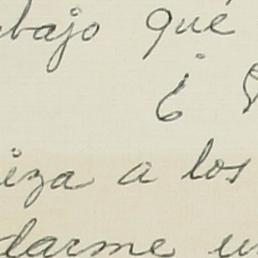 bajo que
¿
iza a los
darme un